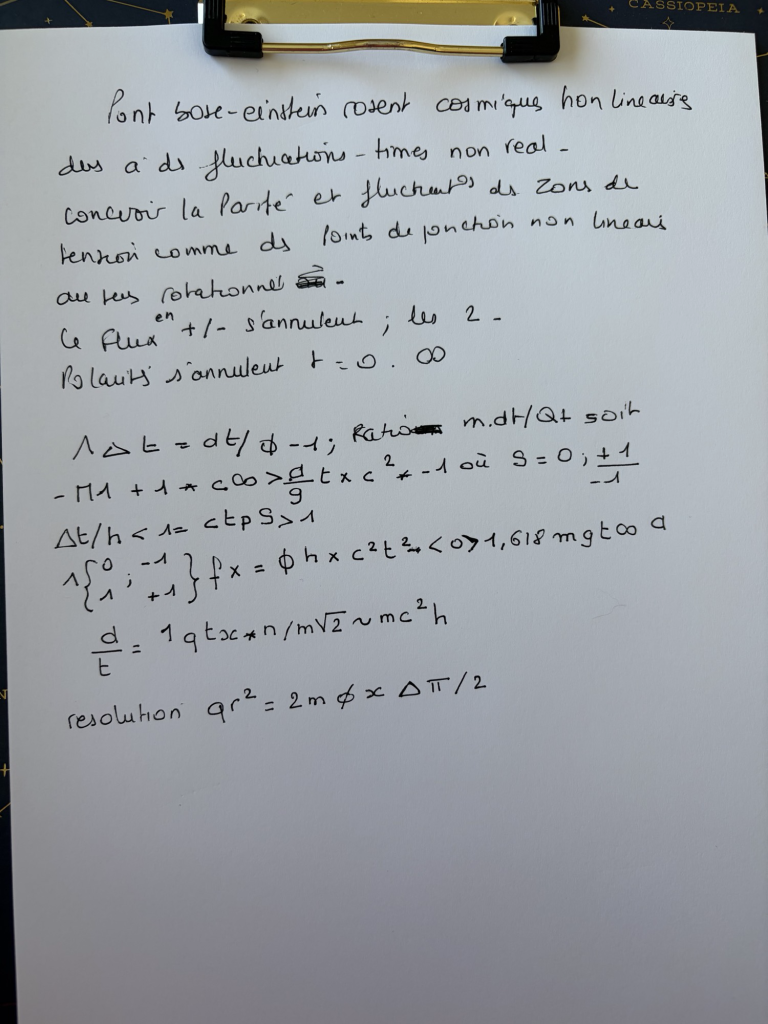 CASSIOPEIA
Pont bose-einstein cosmiques non lineaires
dus a ds fluctuations-times non real -
concevoir la Parité et fluctuent ds zons de
tension comme ds Points de jonction non lineais
au rotationnel -
Ce flux en +/- s'annulent ; les 2 -
Polarités s'annulent t = 0 . ∞
1 Δ t = dt/ϕ -1 ; Ratio m.dt/Qt soit
- M1 + 1 * c∞ > d/g t x c² * -1 où S = 0 ; +1/-1
Δt/h < 1 = ctp S > 1
1{0 ; -1 / 1 +1} fx = ϕ h x c² t² <0> 1,618 m g t ∞ d
d/t = 1 q t x * n/m√2 ~ mc² h
resolution qr² = 2m ϕ x Δ π/2